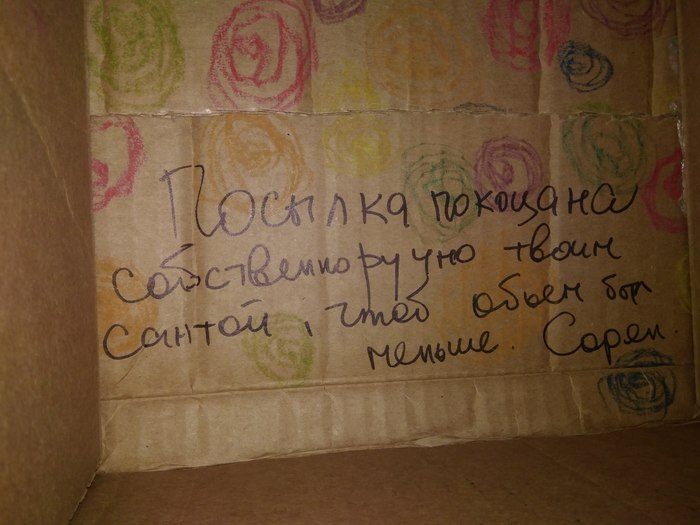 Посылка покоцана
собственноручно твоим
сантой, чтоб обьем был
меньше. Сорян.